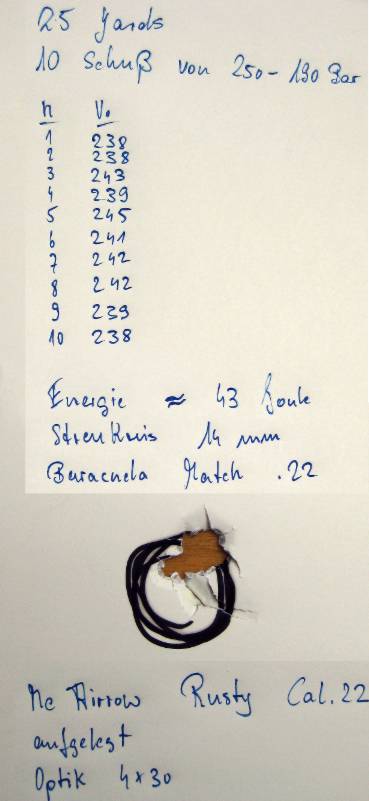 25 Yards
10 Schuß von 250 - 190 Bar
n V₀
1 238
2 238
3 243
4 239
5 245
6 241
7 242
8 242
9 239
10 238
Energie ≈ 43 Joule
Streukreis 14 mm
Baracuda Match .22
Mc Airrow Rusty Cal. 22
aufgelegt
Optik 4x30